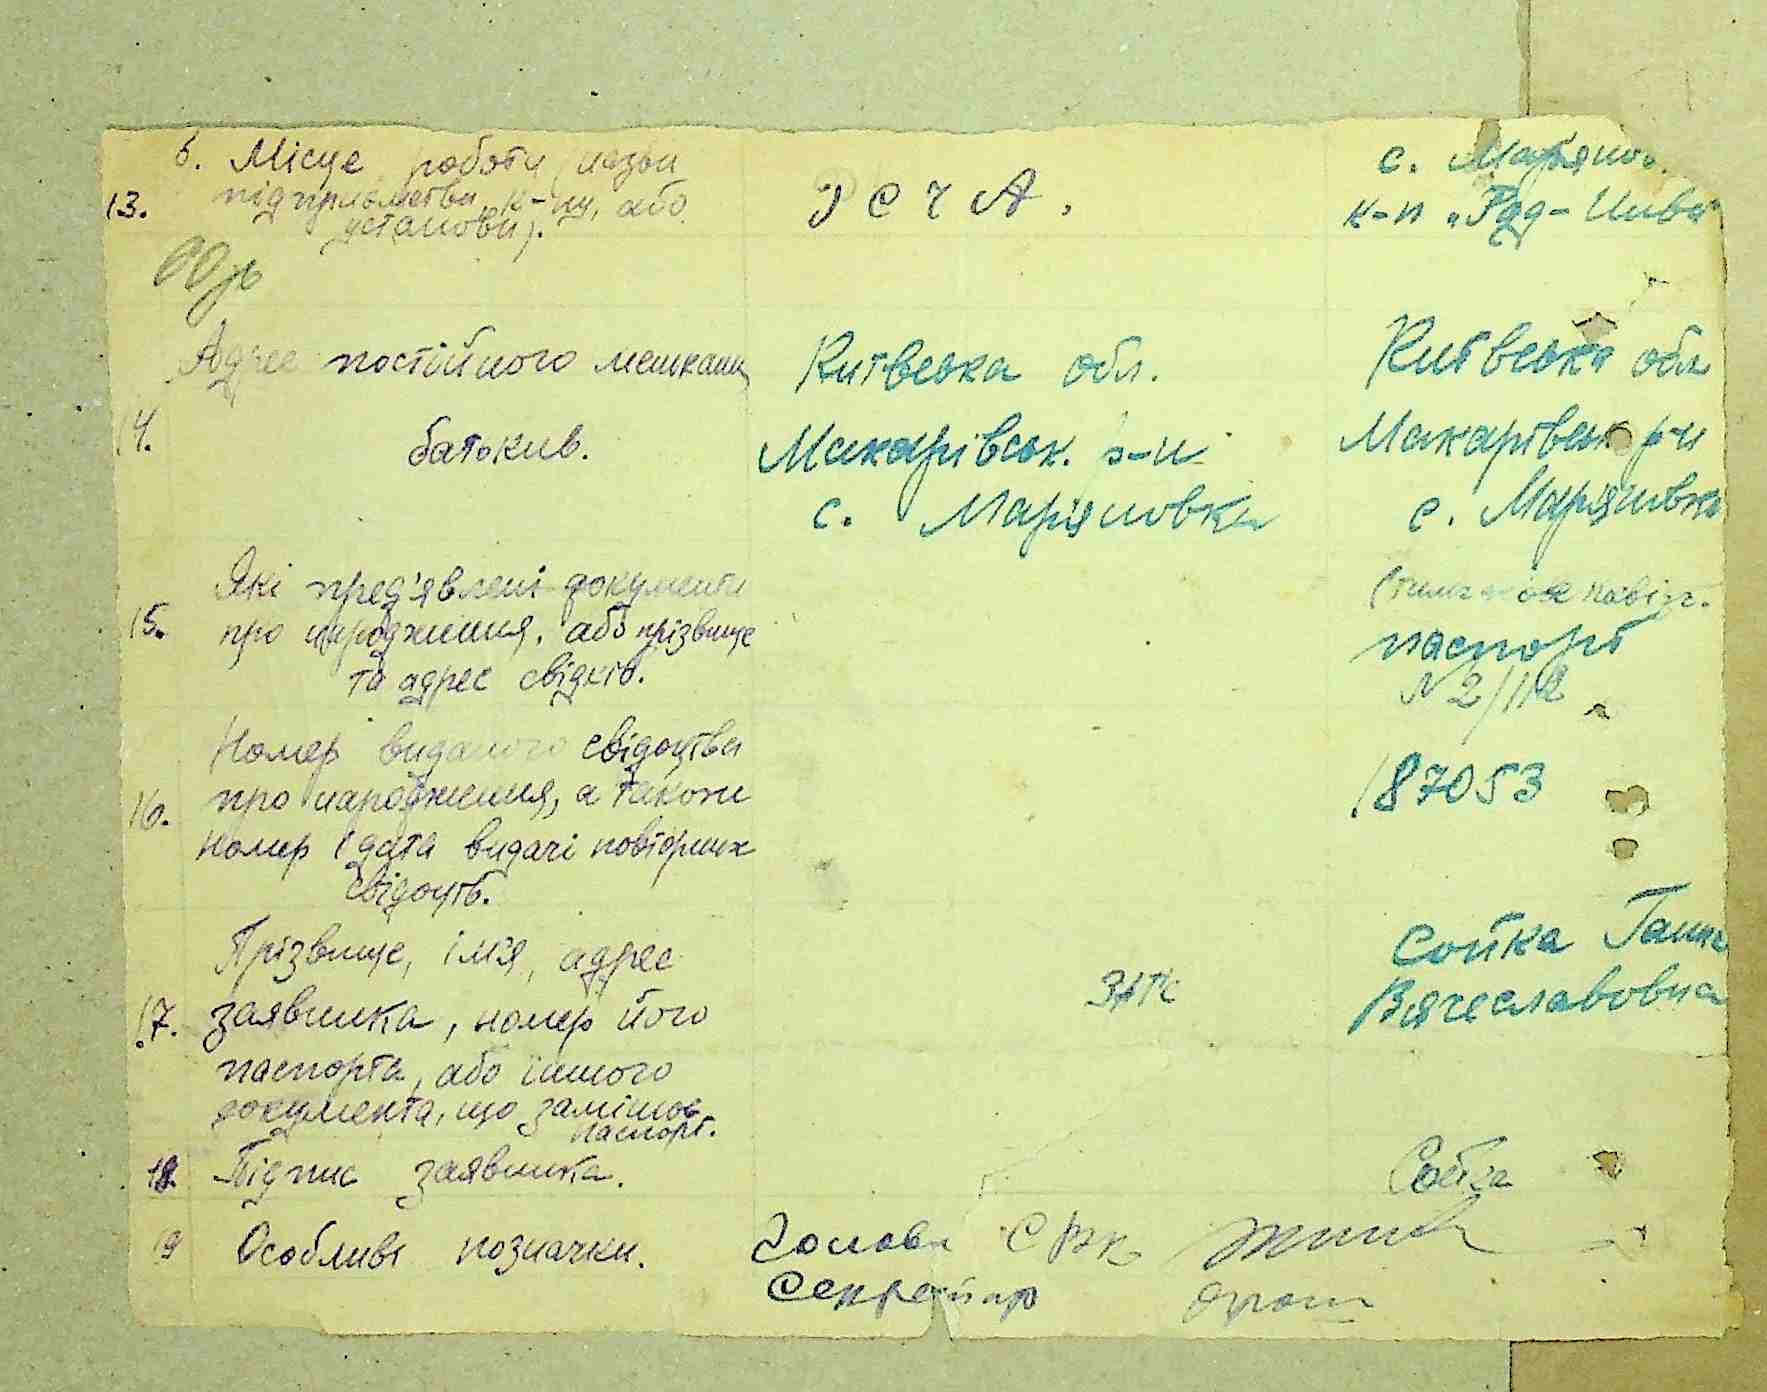 б. Місце роботи (назва
13. підприємства, к-пу, або
установи).
Р С Ч А.
с. Мар'янов
к-п "Рад-Нива"
Адрес постійного мешкання
14. батьків.
Китвська обл.
Макарівськ. р-н
с. Маріяновка
Китвська обл
Макарівськ р-н
с. Маріяновка
Які пред'явлені документи
15. про народження, або прізвище
та адрес свідків.
паспорт
N 2/112
Номер виданого свідоцтва
16. про народження, а також
номер і дата видачі повторних
свідоцтв.
187053
Прізвище, ім'я, адрес
17. заявника, номер його
паспорта, або іншого
документа, що замінює
паспорт.
ЗАГС
Сойка Ганна
Вячеславовна
18. Підпис заявника.
Сойка
19 Особливі позначки.
Голова
Секретар